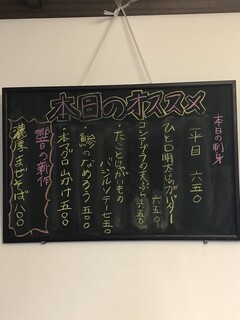 本日のオススメ
本日の刺身
平目 六五〇
ひと口明太じゃがバター
六五〇
コシアブラの天ぷら 六五〇
・たことじゃがいもの
バジルソテー 七五〇
・鯵のなめろう 五〇〇
・本マグロ山かけ 五〇〇
響の新作
濃厚まぜそば 八〇〇